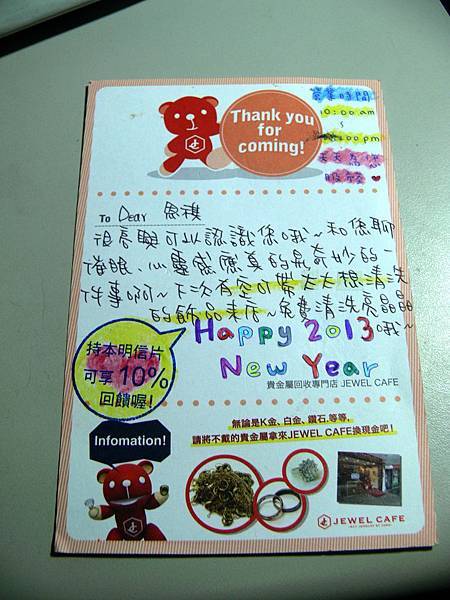 Thank you
for
coming!
營業時間
10:00 am
~
:00 pm
天天為您
服務
To Dear 恩祺
很高興可以認識您哦~和您聊
催眠、心靈感應真的是奇妙的一
件事啊~下次有空可帶太太想清洗
的飾品來店~免費清洗亮晶晶
哦~
Happy 2013
New Year
持本明信片
可享10%
回饋喔!
貴金屬回收專門店 JEWEL CAFE
Infomation!
無論是K金、白金、鑽石,等等,
請將不戴的貴金屬拿來JEWEL CAFE換現金吧!
JEWEL CAFE